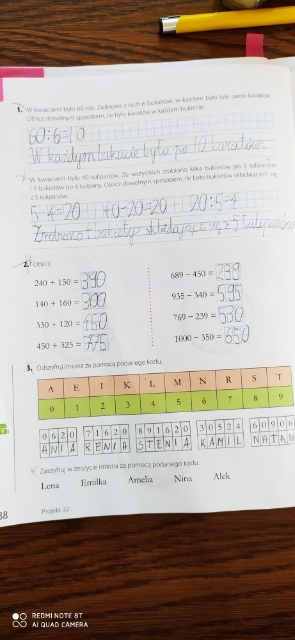 1. W kwiaciarni było 60 róż. Zrobiono z nich 6 bukietów, w każdym było tyle samo kwiatów.
Oblicz dowolnym sposobem, ile było kwiatów w każdym bukiecie.
60:6=10
W każdym bukiecie było po 10 kwiatów.
W kwiaciarni było 40 tulipanów. Ze wszystkich zrobiono kilka bukietów po 5 tulipanów
i 5 bukietów po 4 tulipany. Oblicz dowolnym sposobem, ile było bukietów składających się
z 5 tulipanów.
5·4=20 40-20=20 20:5=4
Zrobiono 4 bukiety składające się z 5 tulipanów
2. Oblicz.
240 + 150 = 390 689 – 450 = 239
140 + 160 = 300 935 – 340 = 595
330 + 120 = 450 769 – 239 = 530
450 + 325 = 775 1000 – 350 = 650
3. Odszyfruj imiona za pomocą podanego kodu.
A E I K L M N R S T
0 1 2 3 4 5 6 7 8 9
0 6 2 0 7 1 6 2 0 8 9 1 6 2 0 3 0 5 2 4 6 0 9 0 6
A N I A R E N I A S T E N I A K A M I L N A T A N
Zaszyfruj w zeszycie imiona za pomocą podanego kodu.
Lena Emilka Amelia Nina Alek
38 Projekt 32.
REDMI NOTE 8T
AI QUAD CAMERA